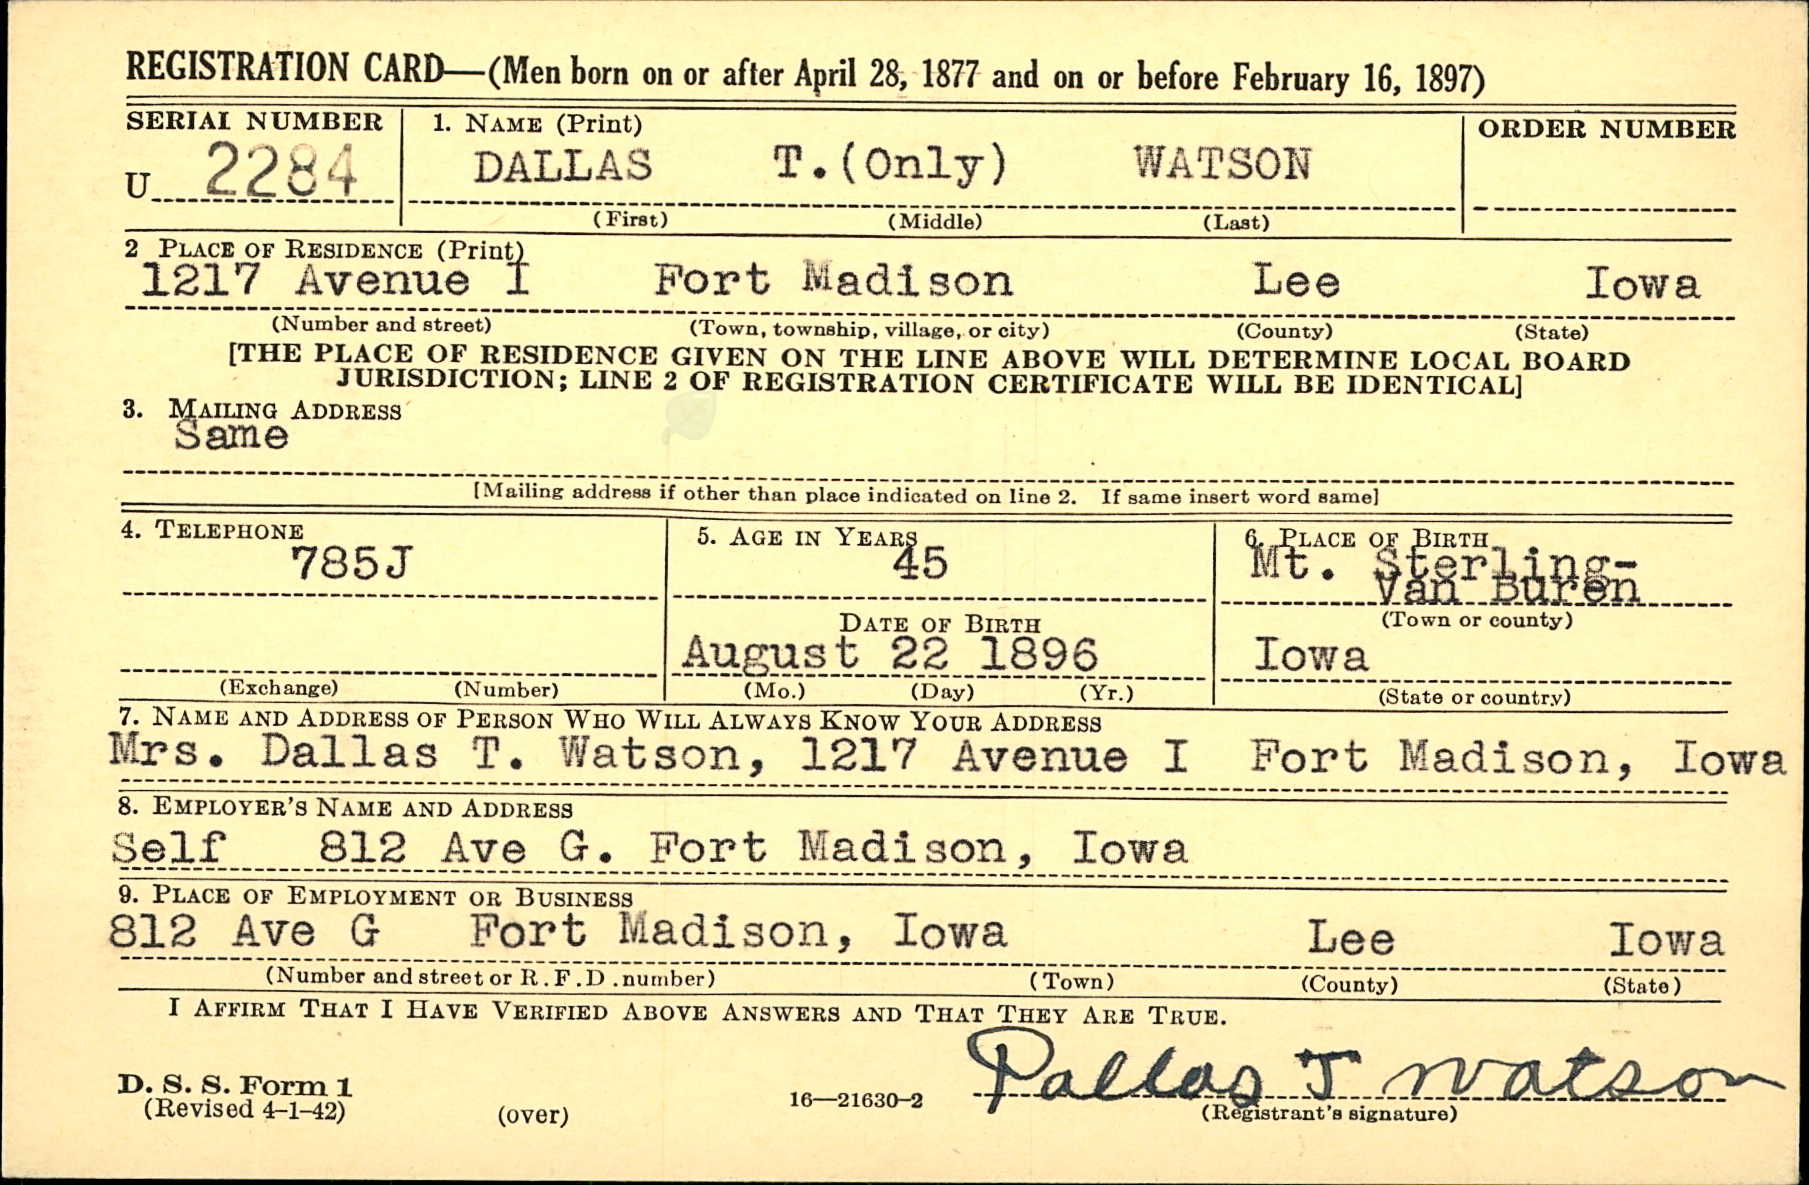 REGISTRATION CARD—(Men born on or after April 28, 1877 and on or before February 16, 1897)
SERIAL NUMBER 1. NAME (Print) ORDER NUMBER
U 2284 DALLAS T.(Only) WATSON
(First) (Middle) (Last)
2 PLACE OF RESIDENCE (Print)
1217 Avenue I Fort Madison Lee Iowa
(Number and street) (Town, township, village, or city) (County) (State)
[THE PLACE OF RESIDENCE GIVEN ON THE LINE ABOVE WILL DETERMINE LOCAL BOARD
JURISDICTION; LINE 2 OF REGISTRATION CERTIFICATE WILL BE IDENTICAL]
3. MAILING ADDRESS
Same
[Mailing address if other than place indicated on line 2. If same insert word same]
4. TELEPHONE 5. AGE IN YEARS 6. PLACE OF BIRTH
785J 45 Mt. Sterling-
Van Buren
DATE OF BIRTH (Town or county)
August 22 1896 Iowa
(Exchange) (Number) (Mo.) (Day) (Yr.) (State or country)
7. NAME AND ADDRESS OF PERSON WHO WILL ALWAYS KNOW YOUR ADDRESS
Mrs. Dallas T. Watson, 1217 Avenue I Fort Madison, Iowa
8. EMPLOYER'S NAME AND ADDRESS
Self 812 Ave G. Fort Madison, Iowa
9. PLACE OF EMPLOYMENT OR BUSINESS
812 Ave G Fort Madison, Iowa Lee Iowa
(Number and street or R.F.D. number) (Town) (County) (State)
I AFFIRM THAT I HAVE VERIFIED ABOVE ANSWERS AND THAT THEY ARE TRUE.
Dallas T Watson
D. S. S. Form 1
(Revised 4-1-42) (over) 16—21630-2 (Registrant's signature)